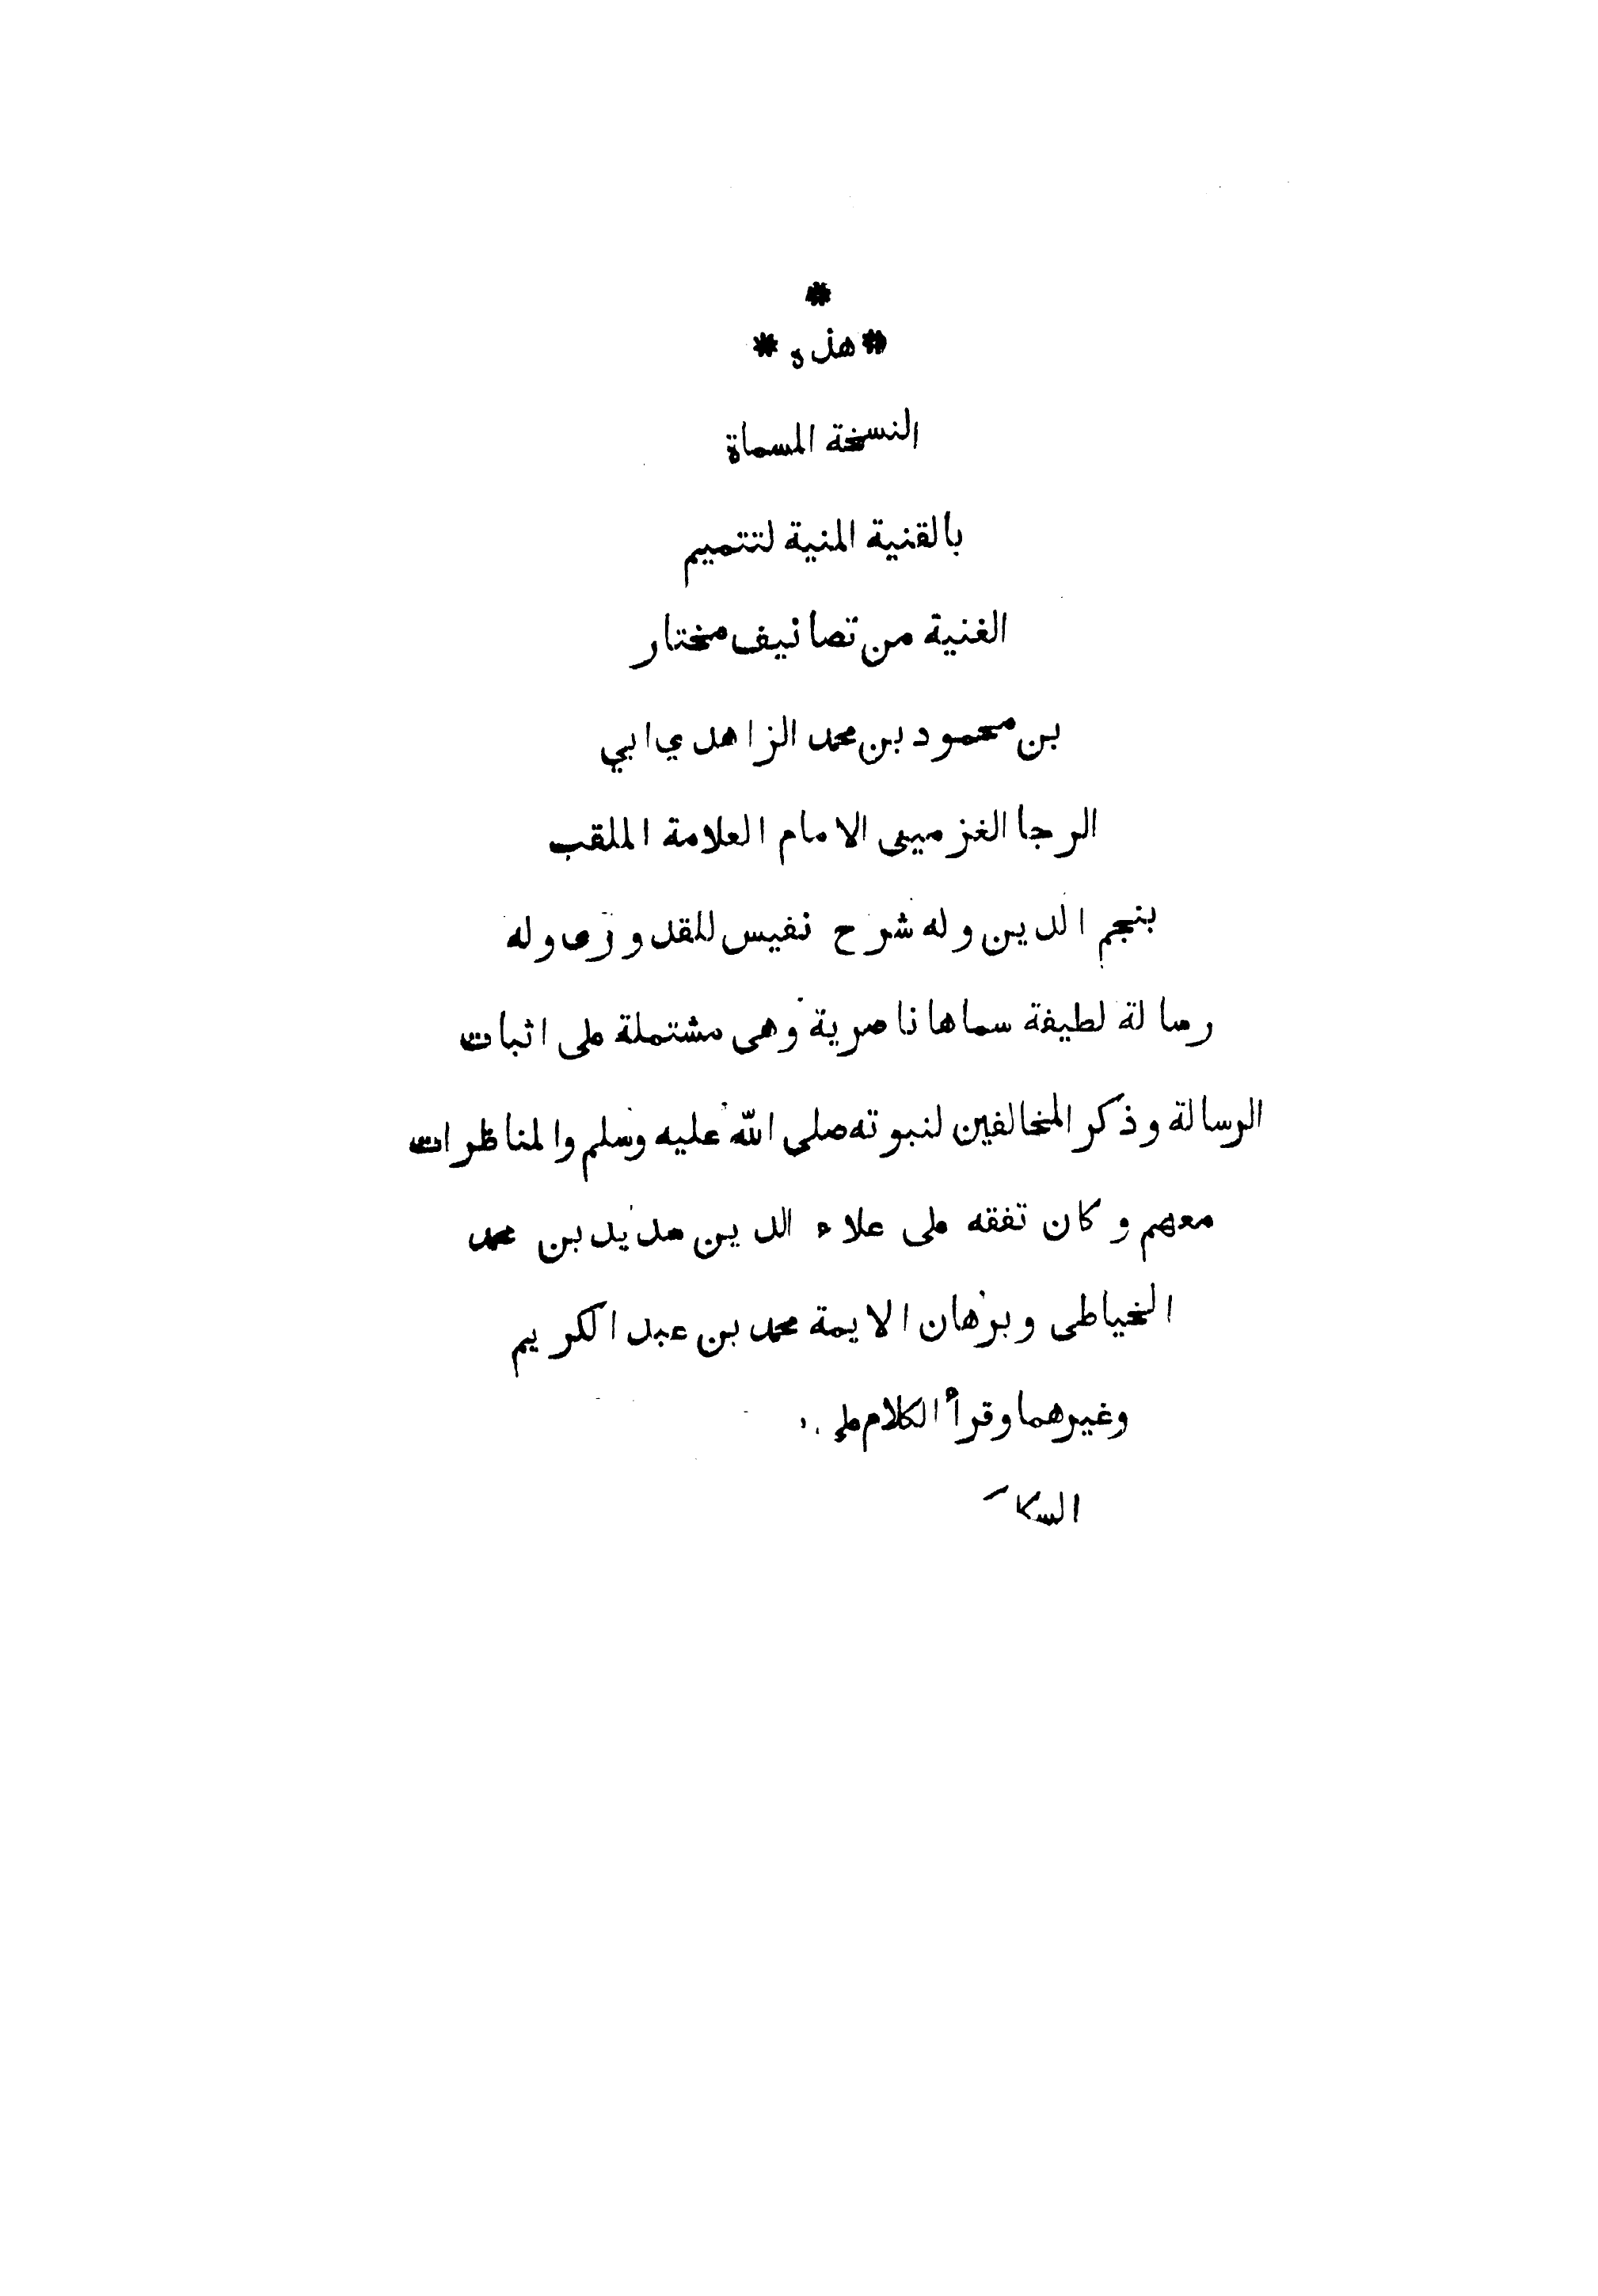 *
* هذه *
النسخة المسماة
بالقنية المنية لتتميم
الغنية من تصانيف مختار
بن محمود بن محمد الزاهدي ابي
الرجا الغزميني الامام العلامة الملقب
بنجم الدين وله شرح نفيس للقدوري وله
رسالة لطيفة سماها ناصرية وهي مشتملة على اثبات
الرسالة وذكر المخالفين لنبوته صلى الله عليه وسلم والمناظرات
معهم وكان تفقه على علاء الدين سديد بن محمد
الخياطي وبرهان الايمة محمد بن عبد الكريم
وغيرهما وقرأ الكلام على